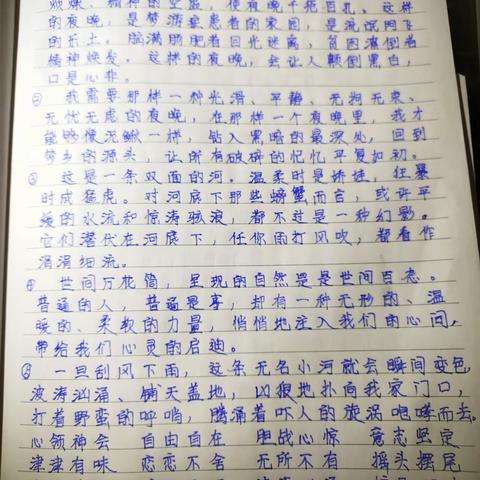 烦燥、精神的空虚，使夜晚千疮百孔。这样
的夜晚，是梦游症患者的家园，是流氓阿飞
的乐土。脑满肠肥者目光迷离，贫困潦倒者
精神焕发。这样的夜晚，会让人颠倒黑白，
口是心非。
② 我需要那样一种光滑、平静、无拘无束、
无忧无虑的夜晚，在那样一个夜晚里，我才
能够像泥鳅一样，钻入黑暗的最深处，回到
梦乡的源头，让所有破碎的记忆平复如初。
③ 这是一条双面的河。温柔时是娇娃，狂暴
时成猛虎。对河底下那些螃蟹而言，或许平
缓的水流和惊涛骇浪，都不过是一种幻影。
它们潜伏在河底下，任你雨打风吹，都看作
涓涓细流。
④ 世间万花筒，呈现的自然是是世间百态。
普通的人，普通是事，却有一种无形的、温
暖的、柔软的力量，悄悄地注入我们的心间，
带给我们心灵的启迪。
⑤ 一旦刮风下雨，这条无名小河就会瞬间变色，
波涛汹涌、铺天盖地，凶狠地扑向我家门口，
打着野蛮的呼哨，腾涌着吓人的旋涡咆哮而去。
心领神会 自由自在 胆战心惊 意志坚定
津津有味 恋恋不舍 无所不有 摇头摆尾